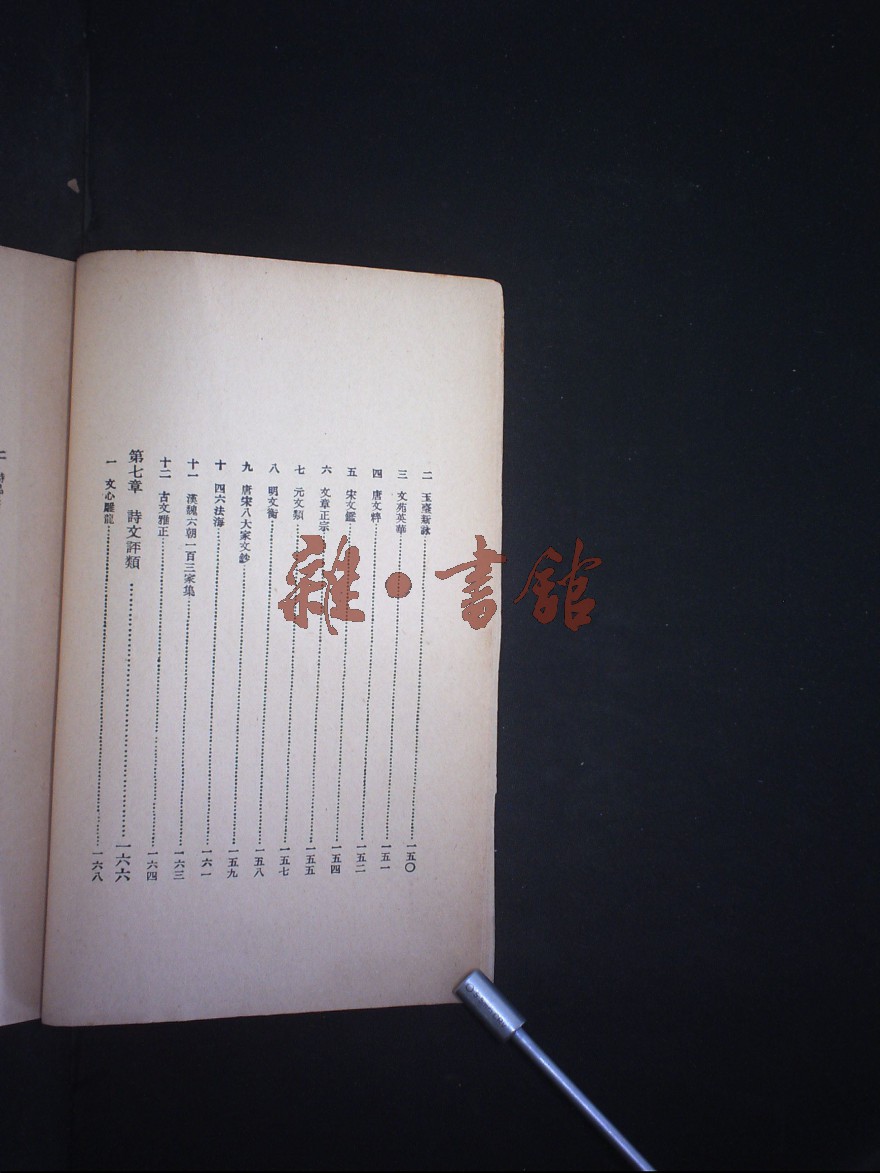 二 玉臺新詠 一五〇
三 文苑英華 一五一
四 唐文粹 一五二
五 宋文鑑 一五四
六 文章正宗 一五五
七 元文類 一五七
八 明文衡 一五八
九 唐宋八大家文鈔 一五九
十 四六法海 一六一
十一 漢魏六朝一百三家集 一六三
十二 古文雅正 一六四
第七章 詩文評類 一六六
一 文心雕龍 一六八
二
雜·書館